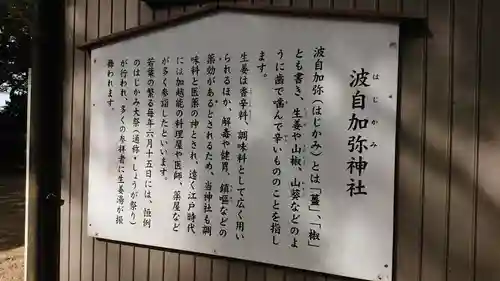 波自加弥神社
はじかみ
波自加弥（はじかみ）とは「薑」、「椒」
とも書き、生姜や山椒、山葵などのよ
うに歯で噛んで辛いもののことを指し
ます。
生姜は香辛料、調味料として広く用い
られるほか、解毒や健胃、鎮嘔などの
薬効があるとされるため、当神社も調
味料と医薬の神とされ、遠く江戸時代
には加越能の料理屋や医師、薬屋など
が多く参詣したといいます。
若葉の繁る毎年六月十五日には、恒例
のはじかみ大祭（通称・しょうが祭り）
が行われ、多くの参拝者に生姜湯が振
舞われます。